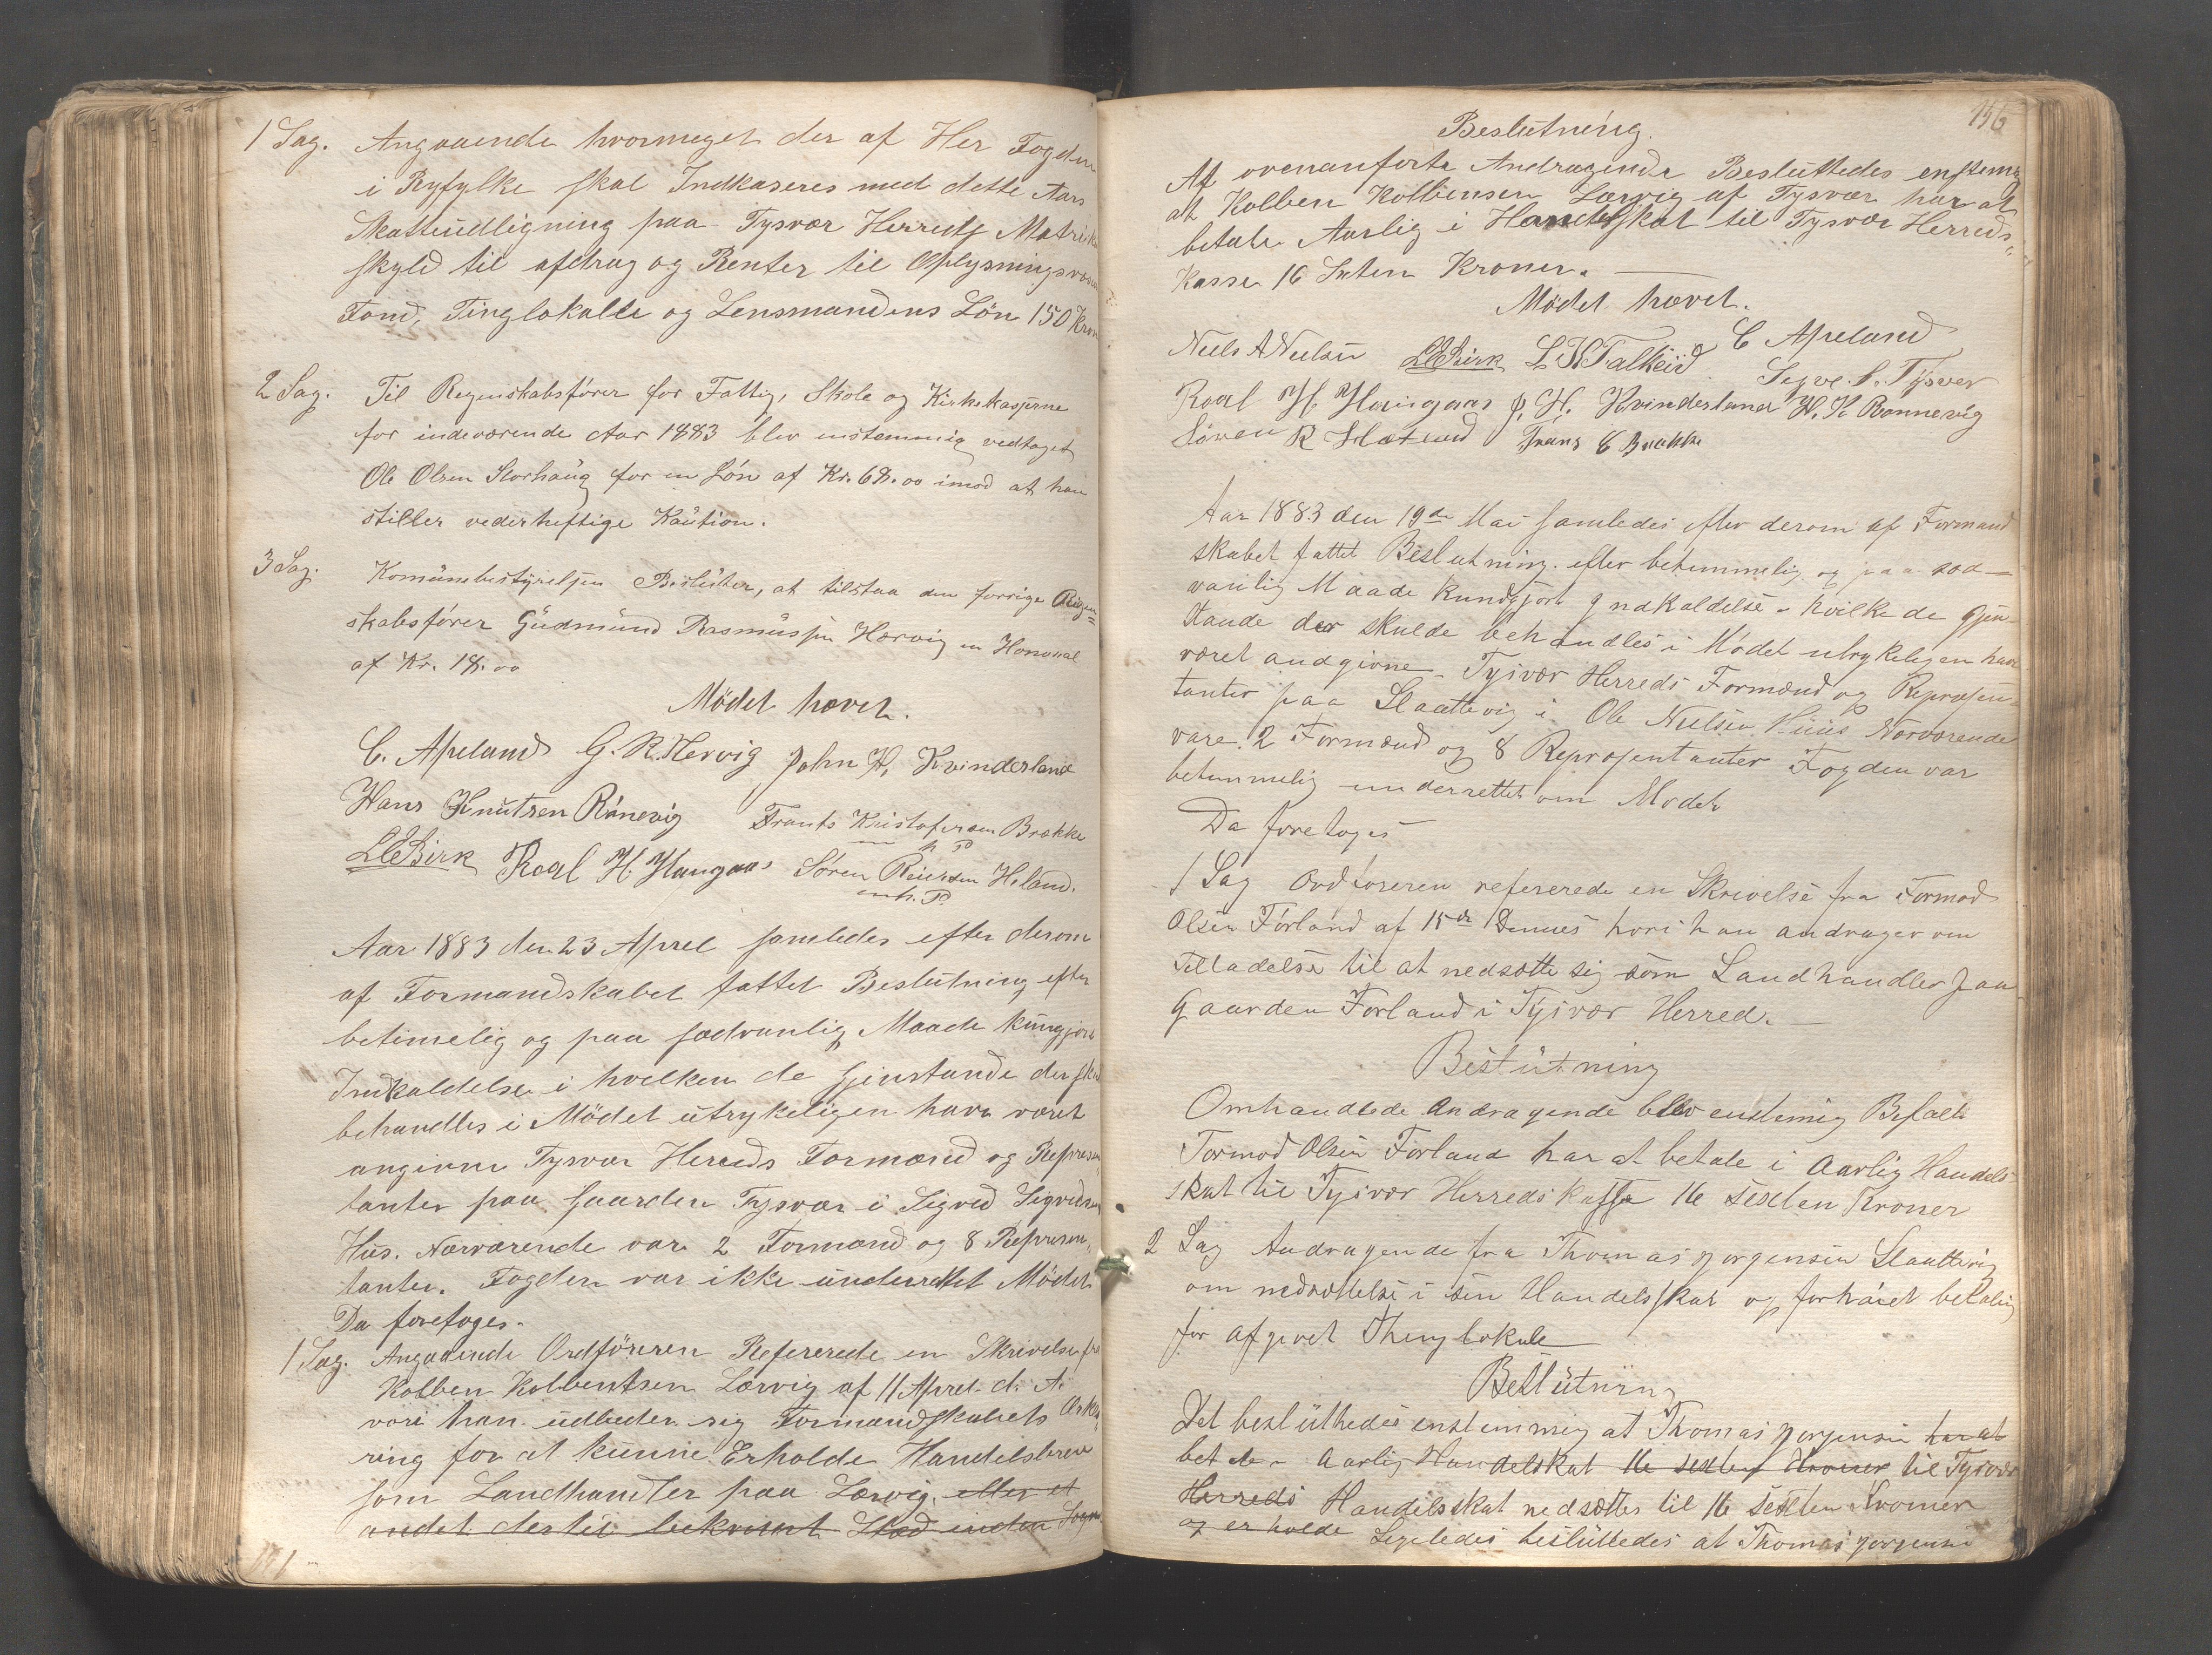 1 Sag. Angaaende hvormeget der af Her Fogden
i Ryfylke skal Indkaseres med dette Aars
Skatteudligning paa Tysvær Herreds Matrik
skyld til afdrag og Renter til Oplysningsvæs
Fond, Tinglokalle og Lensmandens Lön 150 Kron
2 Sag. Til Regnskabsfører for Fattig, Skole og Kirkekasserne
for indeværende Aar 1883 blev enstemmig vedtaget
Ole Olsen Storhaug for en Lön af Kr. 68.00 imod at han
stiller vederheftige Kaution.
3 Sag. Komünebestyrelsen Beslüter, at tilstaa den forrige Regn=
skabsfører Güdmünd Rasmüssen Hervig en Honoral
af Kr. 18.00
Mödet hævet.
C. Apeland G. R. Hervig John H. Kvinderland
Hans Knutsen Rönevig Frants Kristofersen Brække
m P
LEBirk Roal H. Haugaas Søren Reiersen H.land.
m.h.P.
Aar 1883 den 23 April samledes efter derom
af Formandskabet fattet Beslutning efter
betimelig og paa sædvanlig Maade kungjort
Indkaldelse i hvelken de Gjenstande der sku
behandles i Mödet utrykeligen have været
angivne Tysvær Herreds Formænd og Represen
tanter paa Gaarden Tysvær i Sigved Sigvedsen
Hüs. Nærværende var 2 Formænd og 8 Represen
tanter. Fogden var ikke ündervettet Mödet
Da foretoges.
1 Sag. Angaaende Ordföreren Refererede en Skrivelse fra
Kolben Kolbentsen Lærvig af 11 Aprel d. A.
vori han udbeder sig Formandskabets Erklæ
ring for at künne Erholde Handelsbrev
som Landhandler paa Lærvig, eller et
andet dertil bekvemt Sted inden Sogne
156
Beslutning.
Af ovenanførte Andragende Besluttedes enstemig
at Kolben Kolbensen Lærvig af Tysvær har at
betale Aarlig i Handelsskat til Tysvær Herreds
Kasse 16 Seten Kroner.
Mödet hævet.
Neels A Neelsen LEBirk L. K Falkeid C Apeland
Segve. S. Tysver
Roal H. Haugaas J. H. Kvinderland H. K. Rønnevig
Sören R Hætland Frans C Brække
Aar 1883 den 19de Mai samledes efter derom af Formand
skabet fattet Beslutning. efter betimmelig og paa sæd
vanlig Maade kundgjort Indkaldelse hvilke de Gjen
stande der skulde behandles i Mödet utrykeligen have
været andgivne Tysvær Herreds Formænd og Represen
tanter paa Slaattevig i Ole Nielsen Hüüs Nærværende
vare 2 Formænd og 8 Represententanter Fogden var
betimmelig underrettet om Modet
Da foretoges
1 Sag Ordføreren refererede en Skrivelse fra Tormod
Olsen Førland af 15de Dennes hvori han andrager om
Telladelse til at nedsætte sig som Landhandler paa
Gaarden Førland i Tysvær Herred.
Beslütning
Omhandlede Andragende blev enstemig Besluttet
Tormod Olsen Førland har at betale i Aarlig Handels
skat til Tysvær Herreds kasse 16 sexten Kroner
2 Sag Andragende fra Thomas Jørgensen Slaattevig
om nedsættelse i sin Handelsskat og forhøiet betaling
for afgivet Thinglokale
Beslütning
Det beslüttedes enstemmig at Thomas Jørgensen har at
betale Aarlig Handelskat 16 sexten Kroner til Tysvær
Herreds Handelsskat nedsættes til 16 sexten Kroner
og erholde Legeledes beslüttedes at Thomas Jørgensen